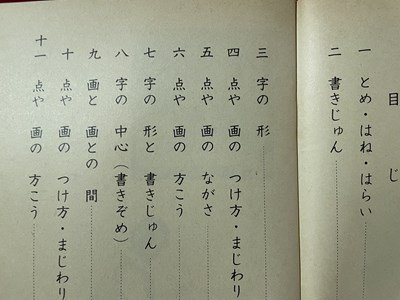 目 じ
一 とめ・はね・はらい
二 書きじゅん
三 字の 形
四 点や 画の つけ方・まじわり
五 点や 画の ながさ
六 点や 画の 方こう
七 字の 形と 書きじゅん
八 字の 中心(書きぞめ)
九 画と 画との 間
十 点や 画の つけ方・まじわり
十一 点や 画の 方こう